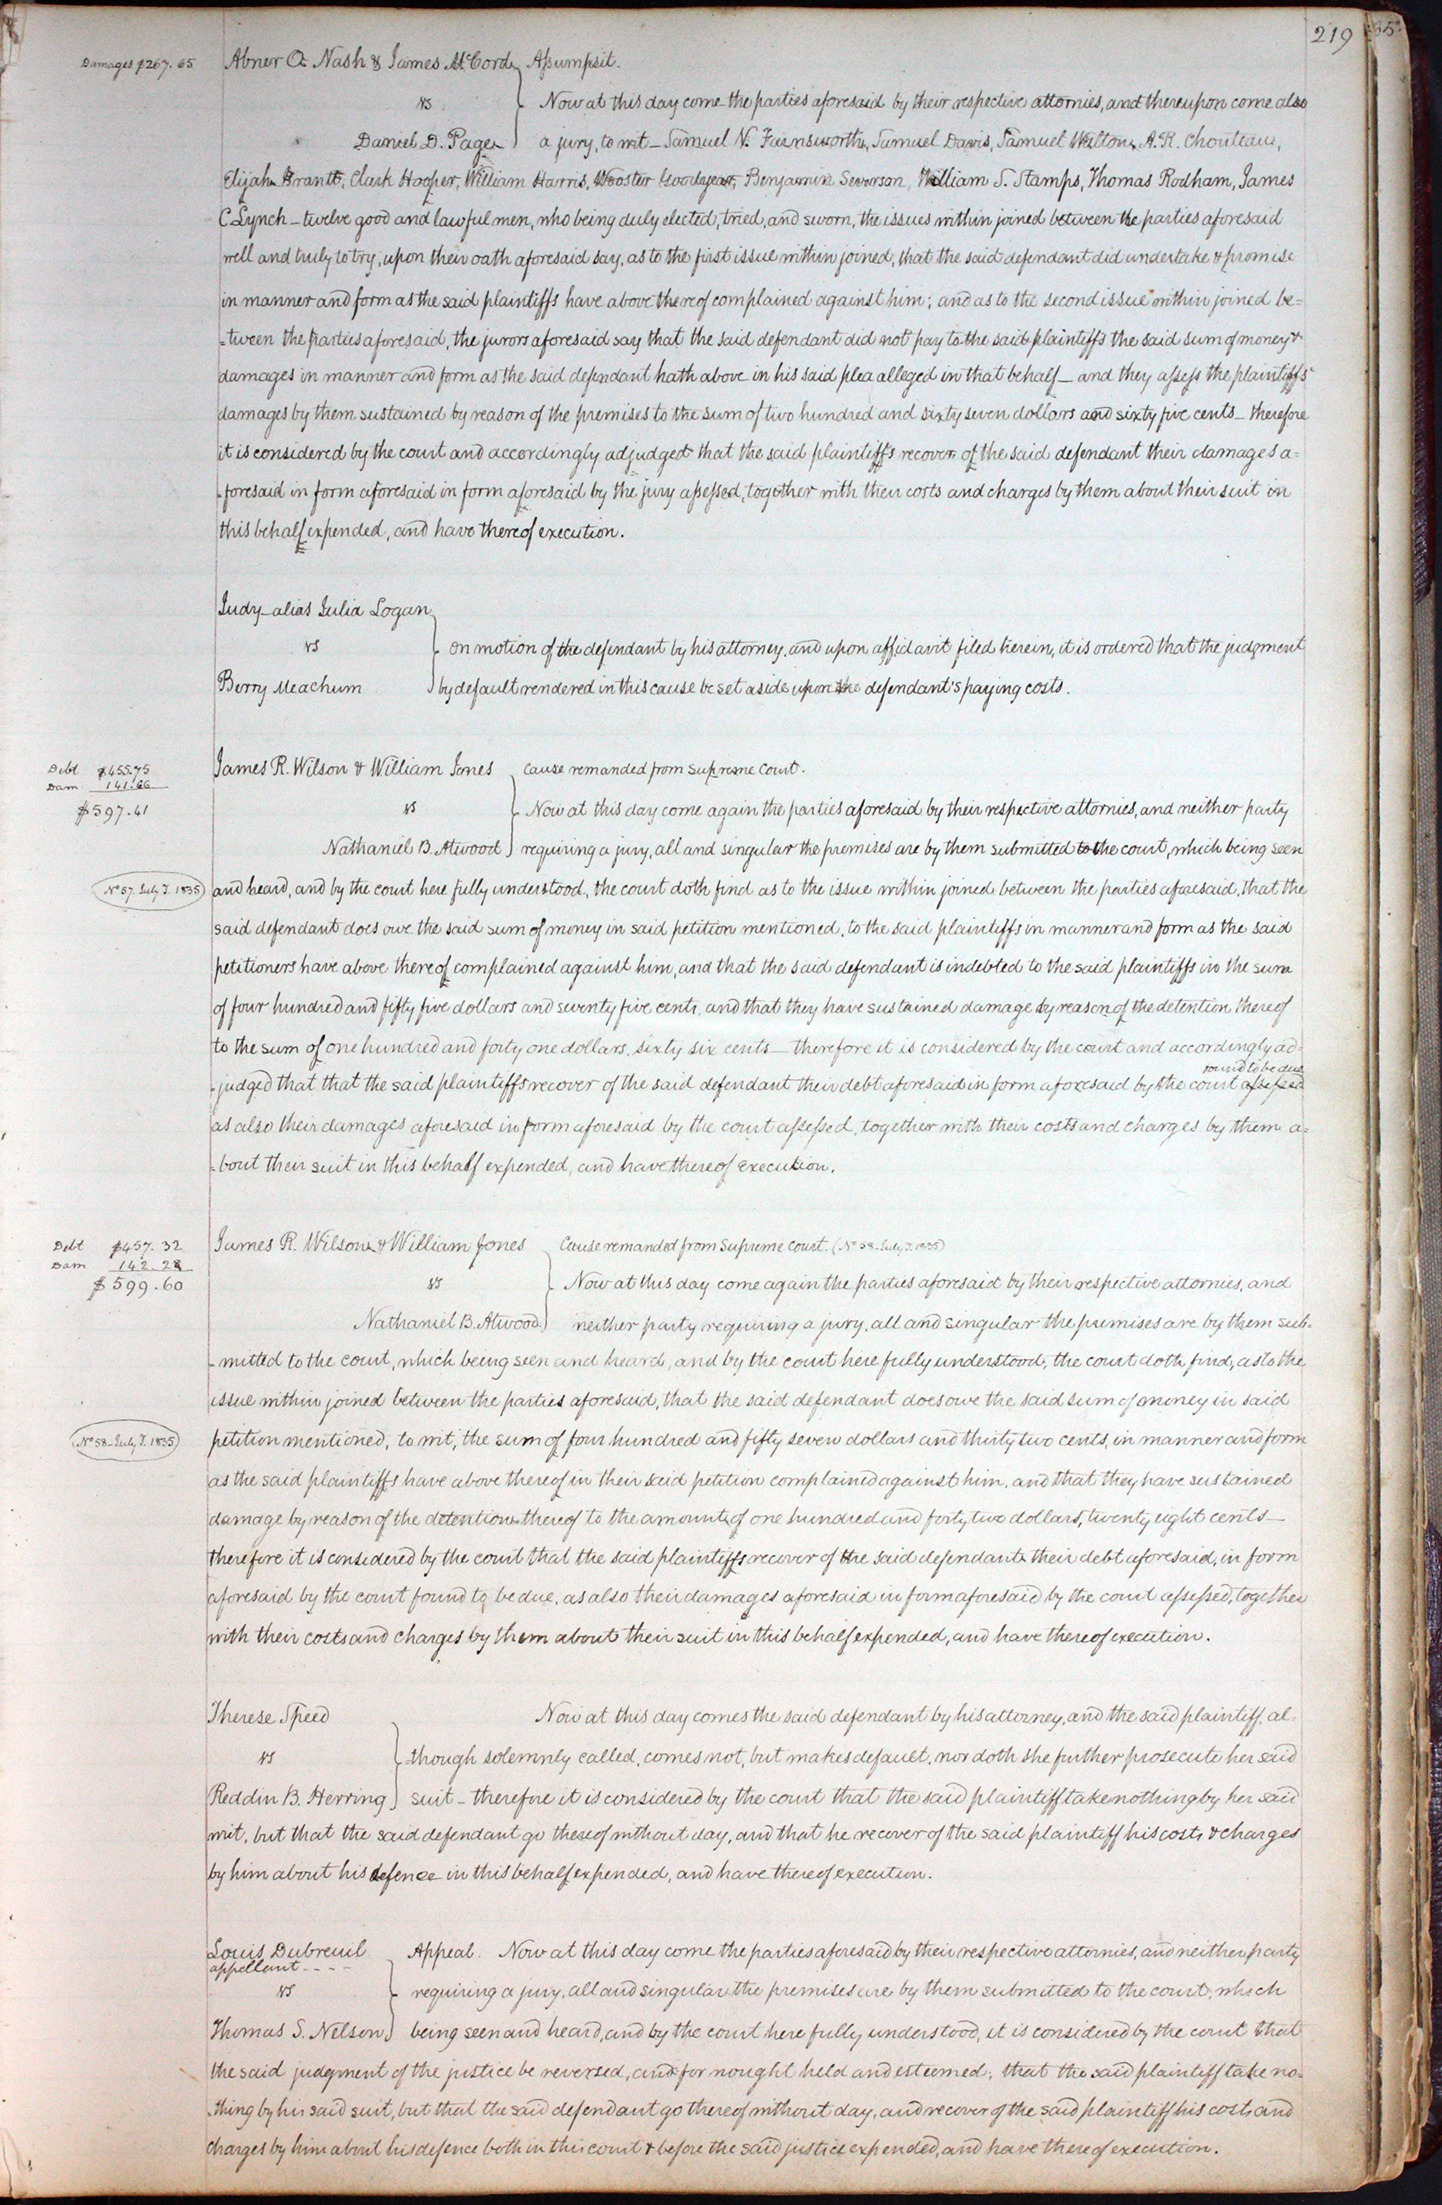 219
65
Damages $267.65
Abner O. Nash & James McCord Assumpsit.
vs Now at this day come the parties aforesaid by their respective attornies, and thereupon come also
Daniel D. Page a jury, to wit - Samuel N. Farnsworth, Samuel Davis, Samuel Walton, A.R. Chouteau,
Elijah Brantt, Clark Hooper, William Harris, Wooster Goodyear, Benjamin Severson, William S. Stamps, Thomas Rodham, James
C Lynch - twelve good and lawful men, who being duly elected, tried, and sworn, the issues within joined between the parties aforesaid
well and truly to try, upon their oath aforesaid say, as to the first issue within joined, that the said defendant did undertake & promise
in manner and form as the said plaintiffs have above thereof complained against him; and as to the second issue within joined be=
=tween the parties aforesaid, the jurors aforesaid say that the said defendant did not pay to the said plaintiffs the said sum of money &
damages in manner and form as the said defendant hath above in his said plea alleged in that behalf - and they assess the plaintiffs
damages by them sustained by reason of the premises to the sum of two hundred and sixty seven dollars and sixty five cents - therefore
it is considered by the court and accordingly adjudged that the said plaintiffs recover of the said defendant their damages a=
=foresaid in form aforesaid in form aforesaid by the jury assessed, together with their costs and charges by them about their suit in
this behalf expended, and have thereof execution.
Judy alias Julia Logan
vs on motion of the defendant by his attorney, and upon affidavit filed herein, it is ordered that the judgment
Berry Meachum by default rendered in this cause be set aside upon the defendant's paying costs.
Debt $455.75
Dam 141.66
$597.41
James R. Wilson & William Jones Cause remanded from Supreme Court.
vs Now at this day come again the parties aforesaid by their respective attornies, and neither party
Nathaniel B. Atwood requiring a jury, all and singular the premises are by them submitted to the court, which being seen
No 57. July T. 1835
and heard, and by the court here fully understood, the court doth find as to the issue within joined between the parties aforesaid, that the
said defendant does owe the said sum of money in said petition mentioned, to the said plaintiffs in manner and form as the said
petitioners have above thereof complained against him, and that the said defendant is indebted to the said plaintiffs in the sum
of four hundred and fifty five dollars and seventy five cents, and that they have sustained damage by reason of the detention thereof
to the sum of one hundred and forty one dollars, sixty six cents - therefore it is considered by the court and accordingly ad=
found to be due
=judged that that the said plaintiffs recover of the said defendant their debt aforesaid in form aforesaid by the court assessed
as also their damages aforesaid in form aforesaid by the court assessed, together with their costs and charges by them a=
=bout their suit in this behalf expended, and have thereof execution.
Debt $457.32
Dam 142.28
$599.60
James R. Wilson & William Jones Cause remanded from Supreme Court. (No 58 - July T. 1835)
vs Now at this day come again the parties aforesaid by their respective attornies, and
Nathaniel B. Atwood neither party requiring a jury, all and singular the premises are by them sub=
=mitted to the court, which being seen and heard, and by the court here fully understood, the court doth find, as to the
issue within joined between the parties aforesaid, that the said defendant does owe the said sum of money in said
No 58 - July T. 1835
petition mentioned, to wit, the sum of four hundred and fifty seven dollars and thirty two cents, in manner and form
as the said plaintiffs have above thereof in their said petition complained against him, and that they have sustained
damage by reason of the detention thereof to the amount of one hundred and forty two dollars, twenty eight cents -
therefore it is considered by the court that the said plaintiffs recover of the said defendant their debt aforesaid, in form
aforesaid by the court found to be due, as also their damages aforesaid in form aforesaid by the court assessed, together
with their costs and charges by them about their suit in this behalf expended, and have thereof execution.
Therese Speed Now at this day comes the said defendant by his attorney, and the said plaintiff, al=
vs though solemnly called, comes not, but makes default, nor doth she further prosecute her said
Reddin B. Herring suit - therefore it is considered by the court that the said plaintiff take nothing by her said
writ, but that the said defendant go thereof without day, and that he recover of the said plaintiff his costs & charges
by him about his defence in this behalf expended, and have thereof execution.
Louis Dubreuil Appeal. Now at this day come the parties aforesaid by their respective attornies, and neither party
appellant
vs requiring a jury, all and singular the premises are by them submitted to the court, which
Thomas S. Nelson being seen and heard, and by the court here fully understood, it is considered by the court that
the said judgment of the justice be reversed, and for nought held and esteemed; that the said plaintiff take no=
=thing by his said suit, but that the said defendant go thereof without day, and recover of the said plaintiff his costs and
charges by him about his defence both in this court & before the said justice expended, and have thereof execution.